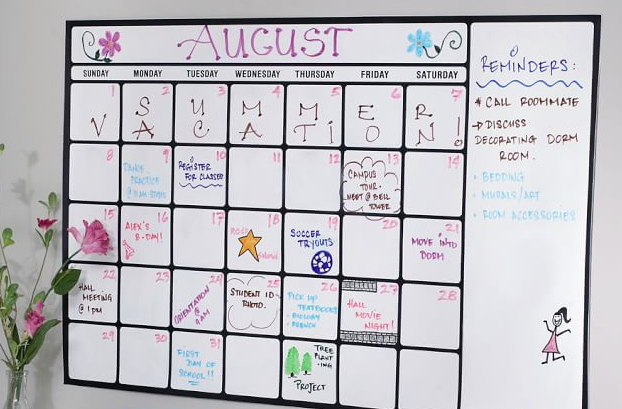 AUGUST
SUNDAY MONDAY TUESDAY WEDNESDAY THURSDAY FRIDAY SATURDAY
1 2 3 4 5 6 7
S U M M E R
V A C A T I O N !
8 9 10 11 12 13 14
DANCE
PRACTICE
REGISTER
FOR CLASSES
CAMPUS
TOUR.
MEET @ BELL
TOWER
15 16 17 18 19 20 21
ALEX'S
B-DAY!
ROCK
SHOW
SOCCER
TRYOUTS
MOVE INTO
DORM
22 23 24 25 26 27 28
HALL
MEETING
@ 1PM
ORIENTATION @
9AM
STUDENT ID
PHOTO.
PICK UP
TEXTBOOKS
- BIOLOGY
- FRENCH
HALL
MOVIE
NIGHT!
29 30 31
FIRST
DAY OF
SCHOOL!!
TREE
PLANT
-ING
PROJECT
REMINDERS:
* CALL ROOMMATE
→ DISCUSS
DECORATING DORM
ROOM.
• BEDDING
• MURALS/ART
• ROOM ACCESSORIES